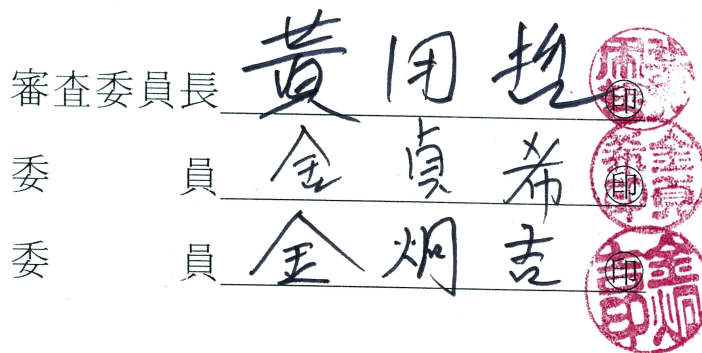 審査委員長 黃 印
委員 金貞希 印
委員 金炯吉 印